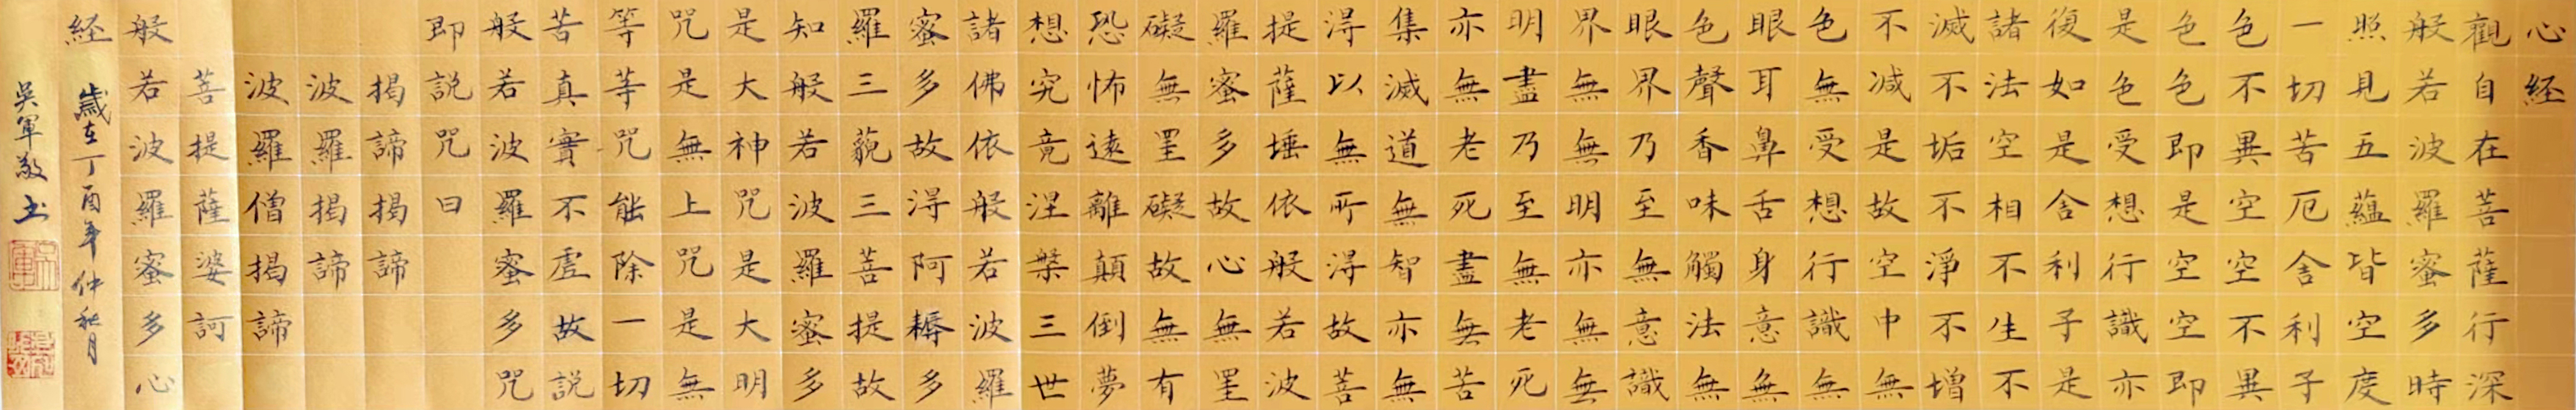 心経
觀自在菩薩行深
般若波羅蜜多時
照見五蘊皆空度
一切苦厄舍利子
色不異空空不異
色色即是空空即
是色受想行識亦
復如是舍利子是
諸法空相不生不
滅不垢不淨不增
不减是故空中無
色無受想行識無
眼耳鼻舌身意無
色聲香味觸法無
眼界乃至無意識
界無無明亦無無
明盡乃至無老死
亦無老死盡無苦
集滅道無智亦無
得以無所得故菩
提薩埵依般若波
羅蜜多故心無罣
礙無罣礙故無有
恐怖遠離顛倒夢
想究竟涅槃三世
諸佛依般若波羅
蜜多故得阿耨多
羅三藐三菩提故
知般若波羅蜜多
是大神咒是大明
咒是無上咒是無
等等咒能除一切
苦真實不虛故説
般若波羅蜜多咒
即説咒曰
揭諦揭諦
波羅揭諦
波羅僧揭諦
菩提薩婆訶
般若波羅蜜多心
経
歲在丁酉年仲秋月
吳軍敬书